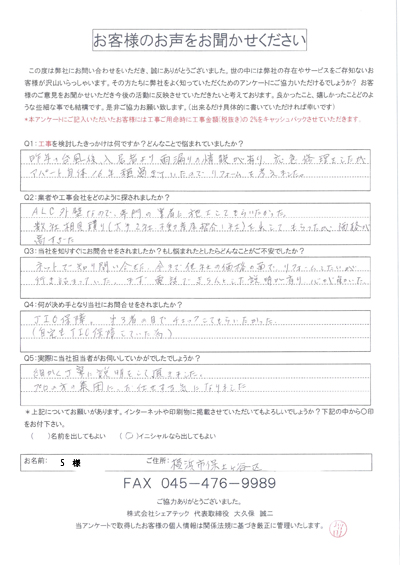 お客様のお声をお聞かせください
この度は弊社にお問い合わせをいただき、誠にありがとうございました。世の中には弊社の存在やサービスをご存知ないお
客様が沢山いらっしゃいます。その方たちに弊社をよく知っていただくためのアンケートにご協力いただけるでしょうか？ お客
様のご意見をお聞かせいただき今後の活動に反映させていただきたいと考えております。良かったこと、嬉しかったことどのよう
な些細な事でも結構です。是非ご協力お願い致します。（出来るだけ具体的に書いていただければ幸いです）
*本アンケートにご記入いただいたお客様には工事ご用命時に工事金額(税抜き)の2%をキャッシュバックさせていただきます。
Q1:工事を検討したきっかけは何ですか？どんなことで悩まれていましたか？
昨年の台風後、入居者より雨漏りの情報が有り、応急修理をしたが
アパート自体16年経過していたのでリフォームを考えました。
Q2:業者や工事会社をどのように探されましたか？
ALC外壁なので、専門の業者に施工してもらいたかった。
数社相見積り
高すぎた
Q3:当社を知りすぐにお問合せをされましたか？もし悩まれたとしたらどんなことがご不安でしたか？
ネットで知り問い合せ、
Q4:何が決め手となり当社にお問合せをされましたか？
JIO保障、第3者の目でチェックしてもらいたかった。
(自宅もJIO保障していた為)
Q5:実際に当社担当者がお伺いしていかがでしたでしょうか？
細かく丁寧に説明をして頂きました。
プロの方の業者に、お任せする気になりました
＊上記についてお願いがあります。インターネットや印刷物に掲載させていただいてもよろしいでしょうか？下記の中から○印
をお付下さい。
（　　）名前を出してもよい　（ ○ ）イニシャルなら出してもよい
お名前: S 様　ご住所: 横浜市保土ヶ谷区
FAX 045-476-9989
ご協力ありがとうございました。
株式会社シェアテック 代表取締役 大久保 誠二
当アンケートで取得したお客様の個人情報は関係法規に基づき厳正に管理いたします。